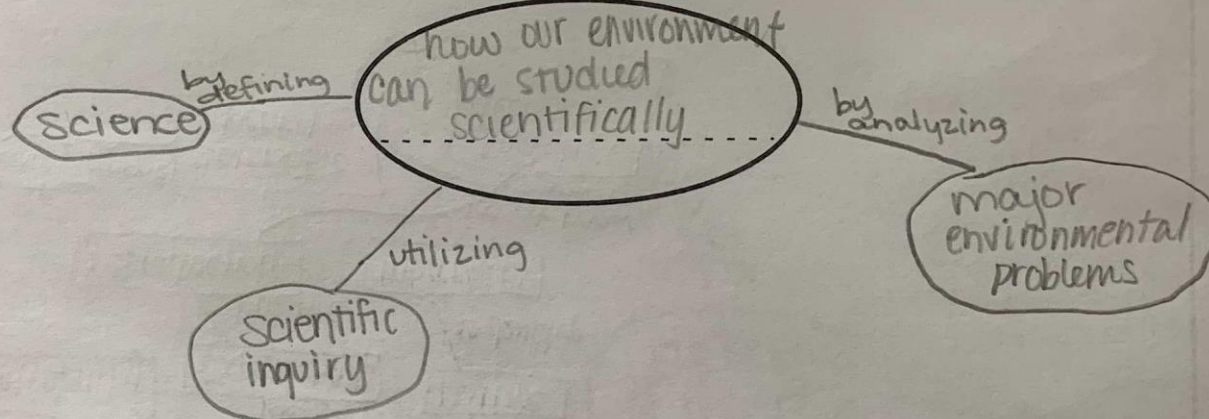 how our environment
can be studied
scientifically
by
defining
science
by
analyzing
major
environmental
problems
utilizing
scientific
inquiry